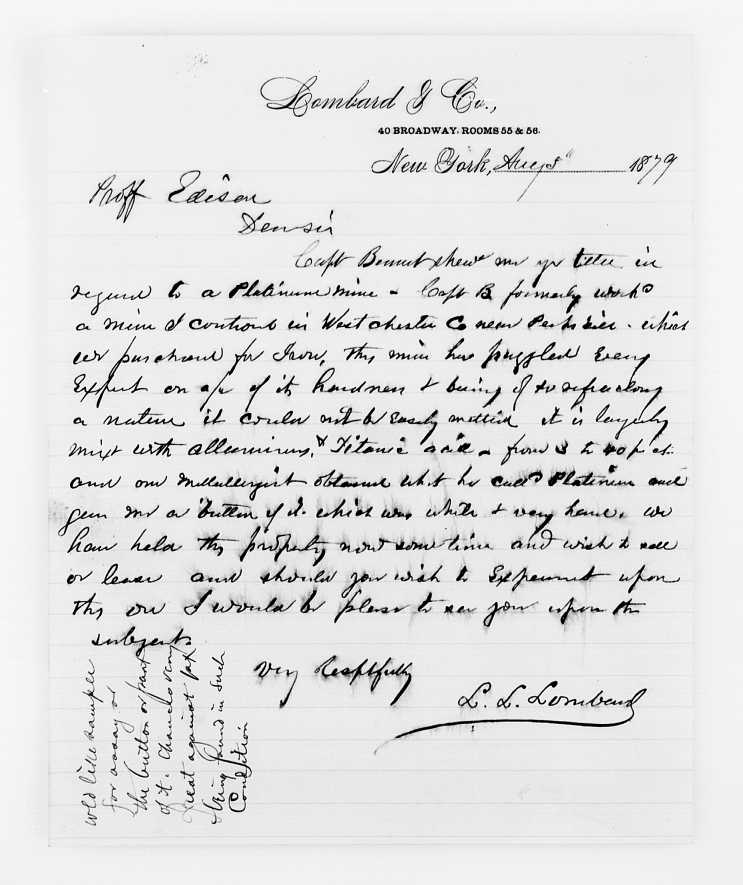 Lombard & Co.,
40 BROADWAY, ROOMS 55 & 56.
New York, Aug 5" 1879
Proff Edison
Dear sir
Capt Bennet shewd me yr letter in
regard to a Platinum mine - Capt B formerly workd
a mine I control in West chester Co near Peekskill - which
we purchased for Iron, this mine has puzzled Every
Expert on a/c of its hardness & being of so refractory
a nature it could not be Easily melted it is largely
mixt with Alluminus, & Titanic acid - from 3 to 40 p ct.
and our Metallurgist obtained what he calld Platinum and
gave me a button of it which was white & very hard. we
have held this property now some time and wish to sell
or lease and should you wish to Experiment upon
this ore I would be pleasd to see you upon the
subject.
Very Respffully
L. L. Lombard
wld like sample
for assay or
the button or part
of it. Chances very
great against pt
being found in such
Condition